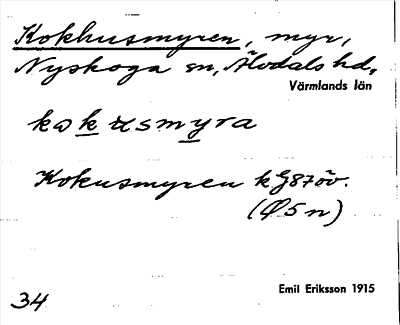 Kokhusmyren, myr,
Nyskoga sn, Älvdals hd,
Värmlands län
kokusmyra
Kokusmyren kG87öv.
(Ø5n)
34
Emil Eriksson 1915